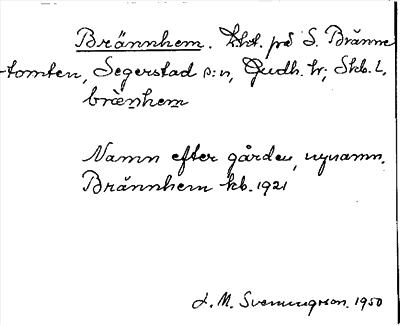 Brännhem. Lht. på S. Bränne
-tomten, Segerstad s:n, Gudh. hr; Skb. l.
bræ̀nhem
Namn efter gården, nynamn.
Brännhem kb. 1921
L. M. Svenungsson. 1950